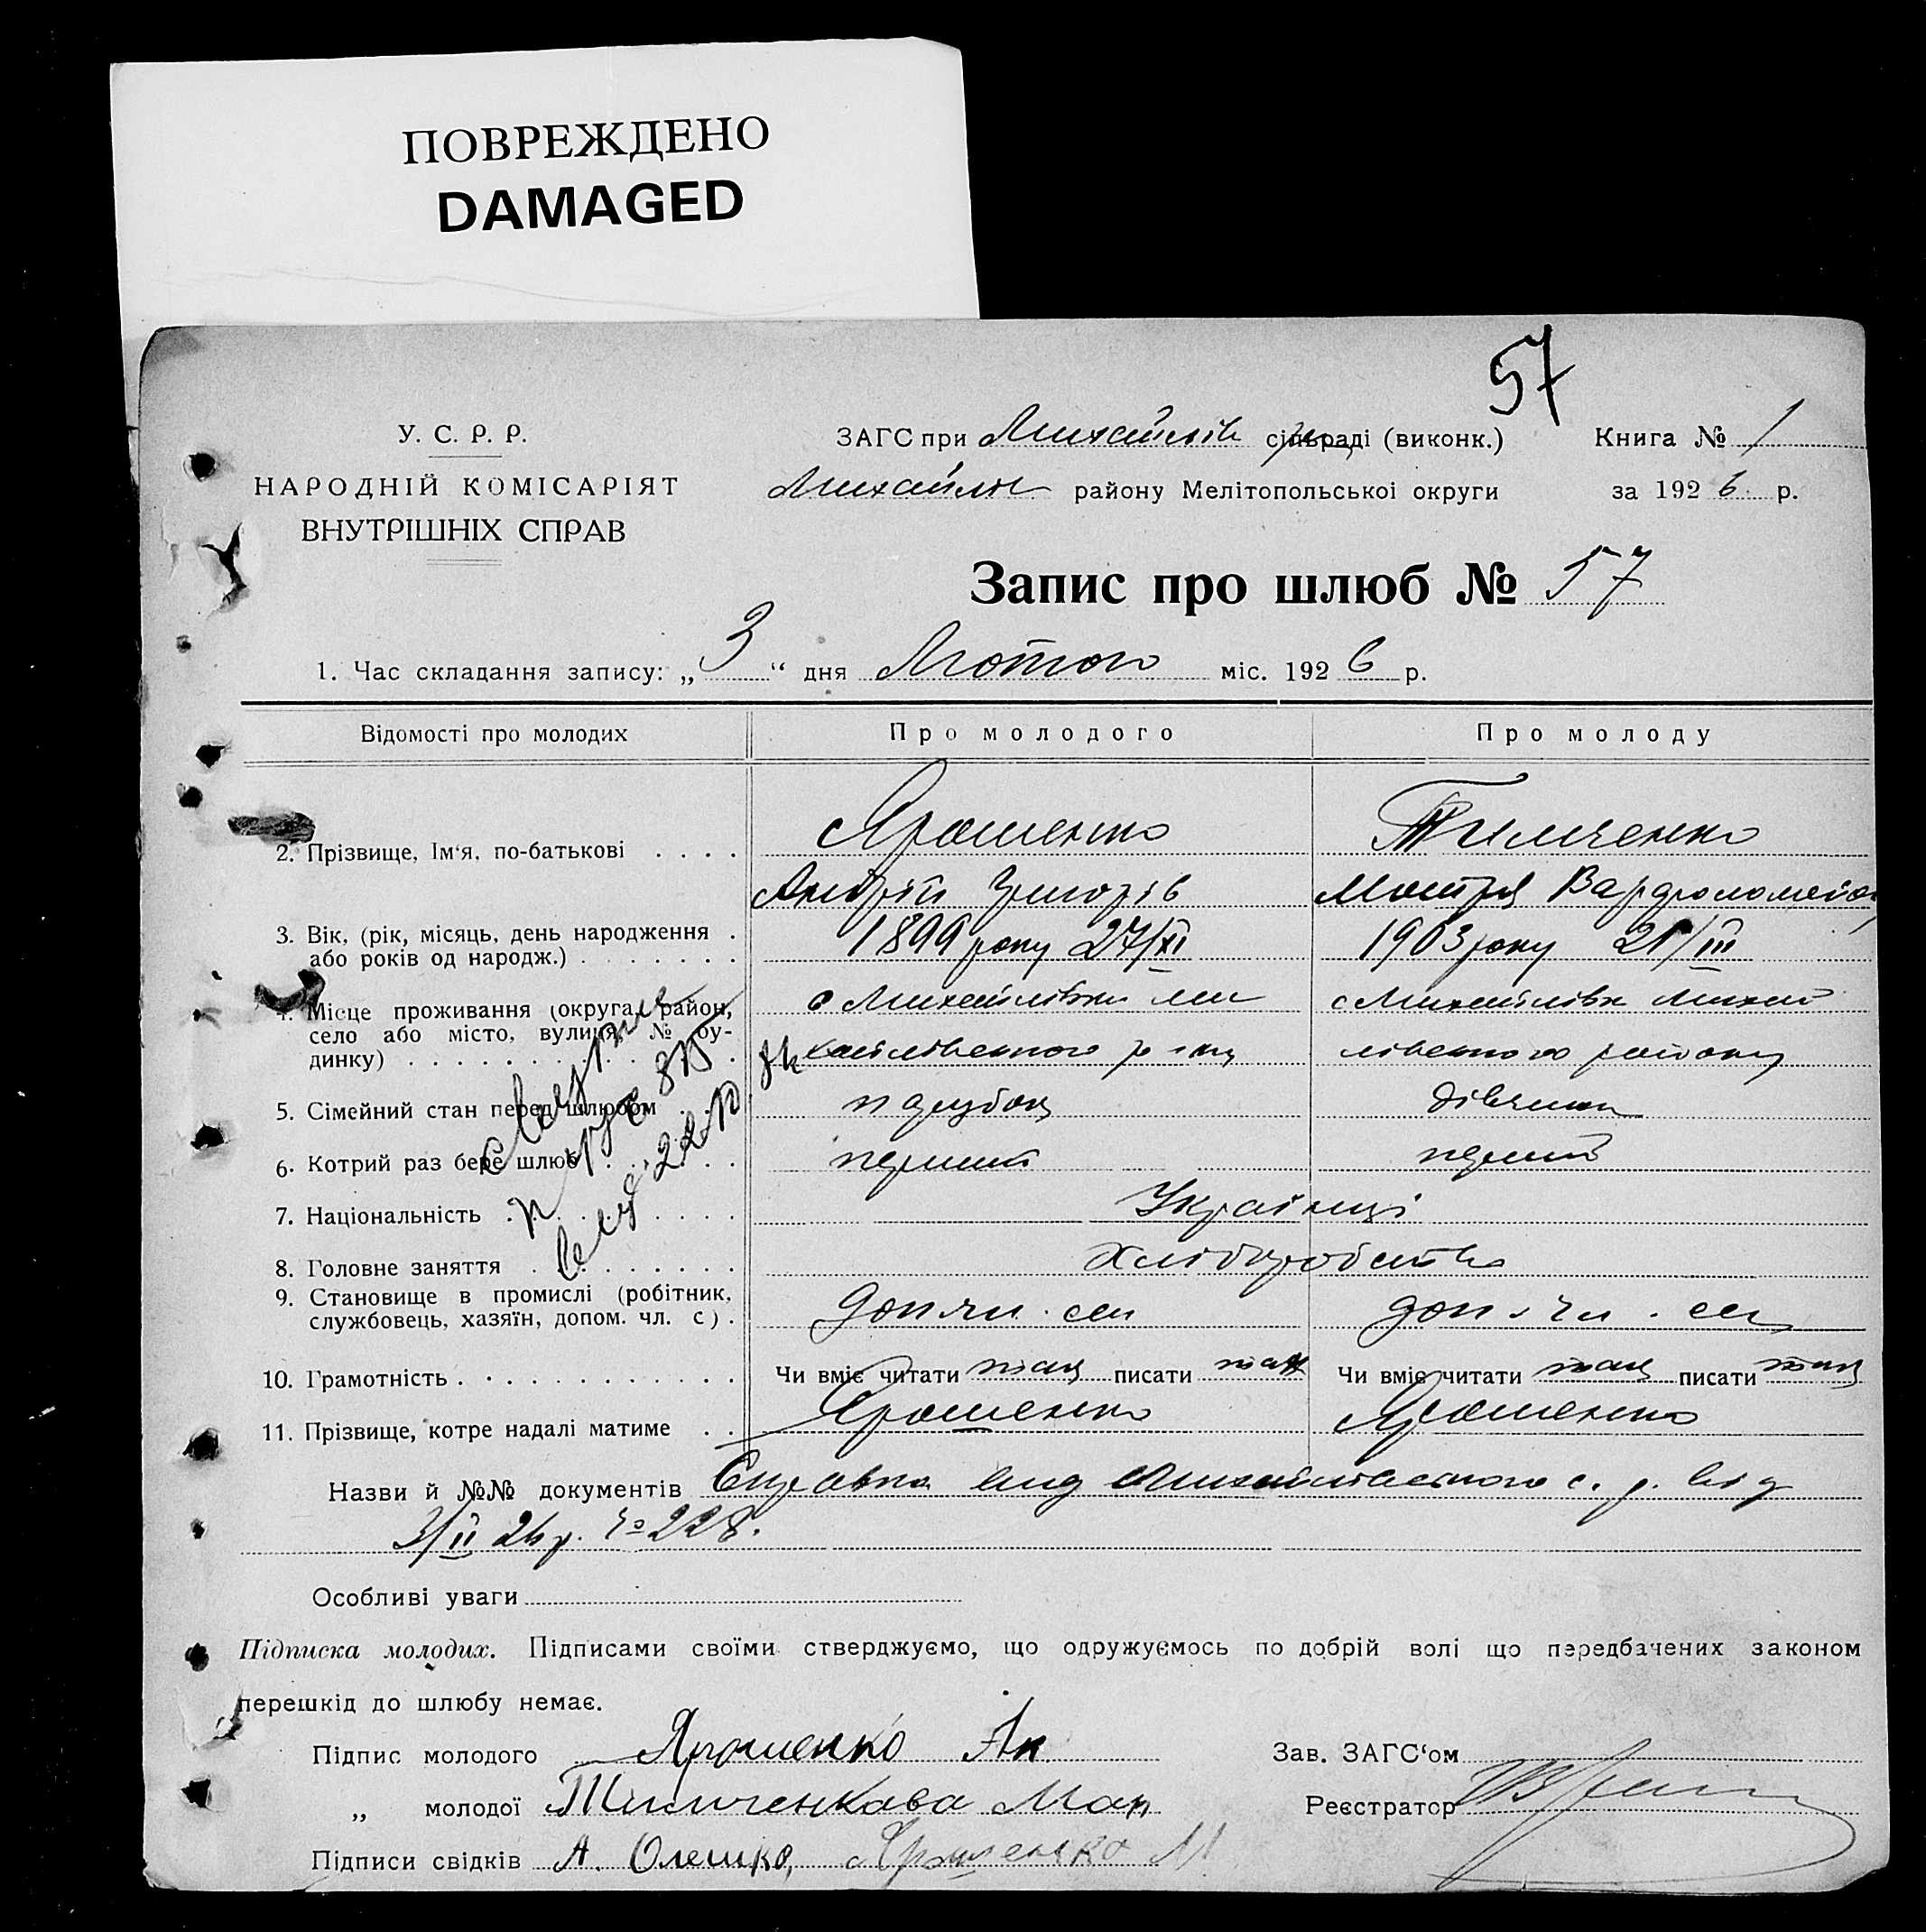 ПОВРЕЖДЕНО
DAMAGED
57
У. С. Р. Р.
НАРОДНІЙ КОМІСАРІЯТ
ВНУТРІШНІХ СПРАВ
ЗАГС при Михайлів сільраді (виконк.) Книга № 1
Михайлів району Мелітопольської округи за 1926 р.
Запис про шлюб № 57
1. Час складання запису: „3“ дня Лютого міс. 1926 р.
Відомості про молодих Про молодого Про молоду
2. Прізвище, Ім'я, по-батькові . . . . Ярошенко Тимченко
Андрій Григорів Мотря Варфоломеівна
3. Вік, (рік, місяць, день народження . 1899 року 27/XI 1903 року 21/III
або років од народж.) . . . . . . .
4. Місце проживання (округа, район, с Михайлівки Ми с Михайлівк Михай
село або місто, вулиця, № бу-
динку) . . . . . . . . . . . . хайлівського р-ну лівського району
5. Сімейний стан перед шлюбом . . . парубок дівчина
6. Котрий раз бере шлюб . . . . . . перший перший
7. Національність . . . . . . . . . Українці
8. Головне заняття . . . . . . . . Хліборобство
9. Становище в промислі (робітник,
службовець, хазяїн, допом. чл. с) . доп чл. сем доп. чл. сем
10. Грамотність . . . . . . . . . . . Чи вміє читати так писати так Чи вміє читати так писати так
11. Прізвище, котре надалі матиме . . Ярошенко Ярошенко
Назви й №№ документів Справка від Михайлівського с. р. від
3/II 26 р. № 228.
Особливі уваги
Підписка молодих. Підписами своїми стверджуємо, що одружуємось по добрій волі що передбачених законом
перешкід до шлюбу немає.
Підпис молодого Ярошенко Ан Зав. ЗАГС'ом
„ молодої Тимченкова Мот Реєстратор
Підписи свідків А. Олешко, Ярошенко М